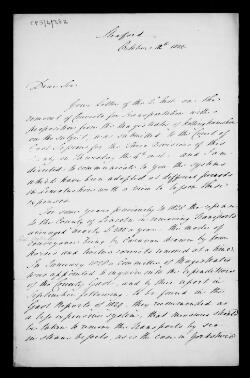 CP5/4/282
Sleaford
October 12th 1826
Dear Sir
Your Letter of the 2d Inst on the
removal of Convicts for Transportation with a
proposition from the Magistrates of Nottinghamshire
on the subject, was submitted to the Court of
Quarter Sessions for the three Divisions of this
County on Thursday the and I am
directed to communicate to you the systems
which have been adopted at different periods
in Lincolnshire with a view to lessen the
expense.
For some years previously to 1828 the expense
to the County of Lincoln in removing Transports
averaged nearly a year the mode of
conveyance being by Caravan drawn by four
horses and twelve convicts removed at a time.
In January 1828 a Committee of Magistrates
was appointed to enquire into the Expenditure
of the County Gaol, and by their report in
September following, to be found in the
Gaol Reports of 1828, they recommended as
a less expensive system, that measures should
be taken to remove the Transports by sea
in steam vessels, as is the case in